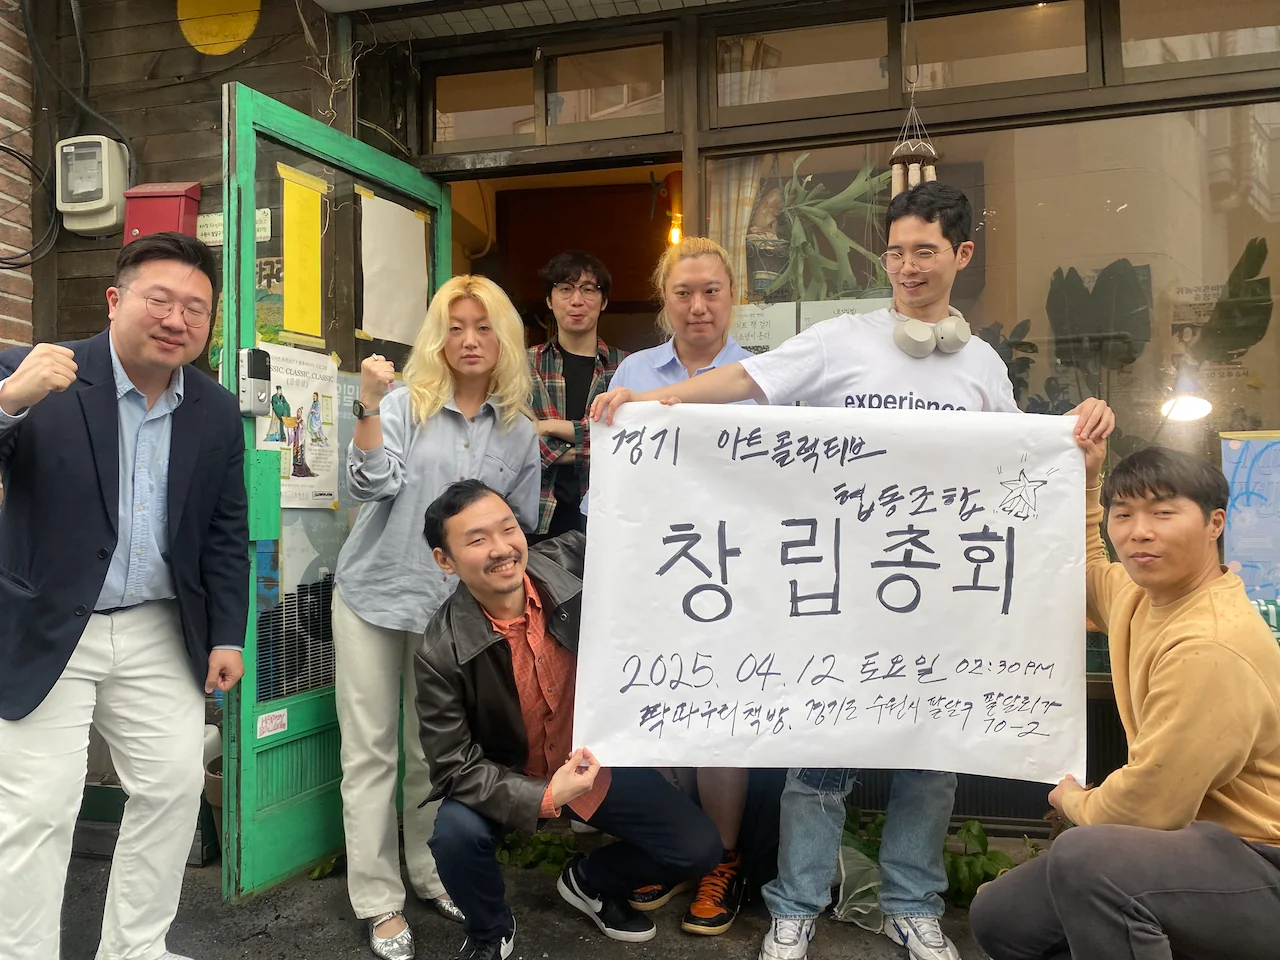 경기 아트콜렉티브
협동조합
창립총회
2025. 04. 12 토요일 02:30PM
딱따구리책방. 경기도 수원시 팔달구 팔달로2가
70-2
experience
CLASSIC, CLASSIC